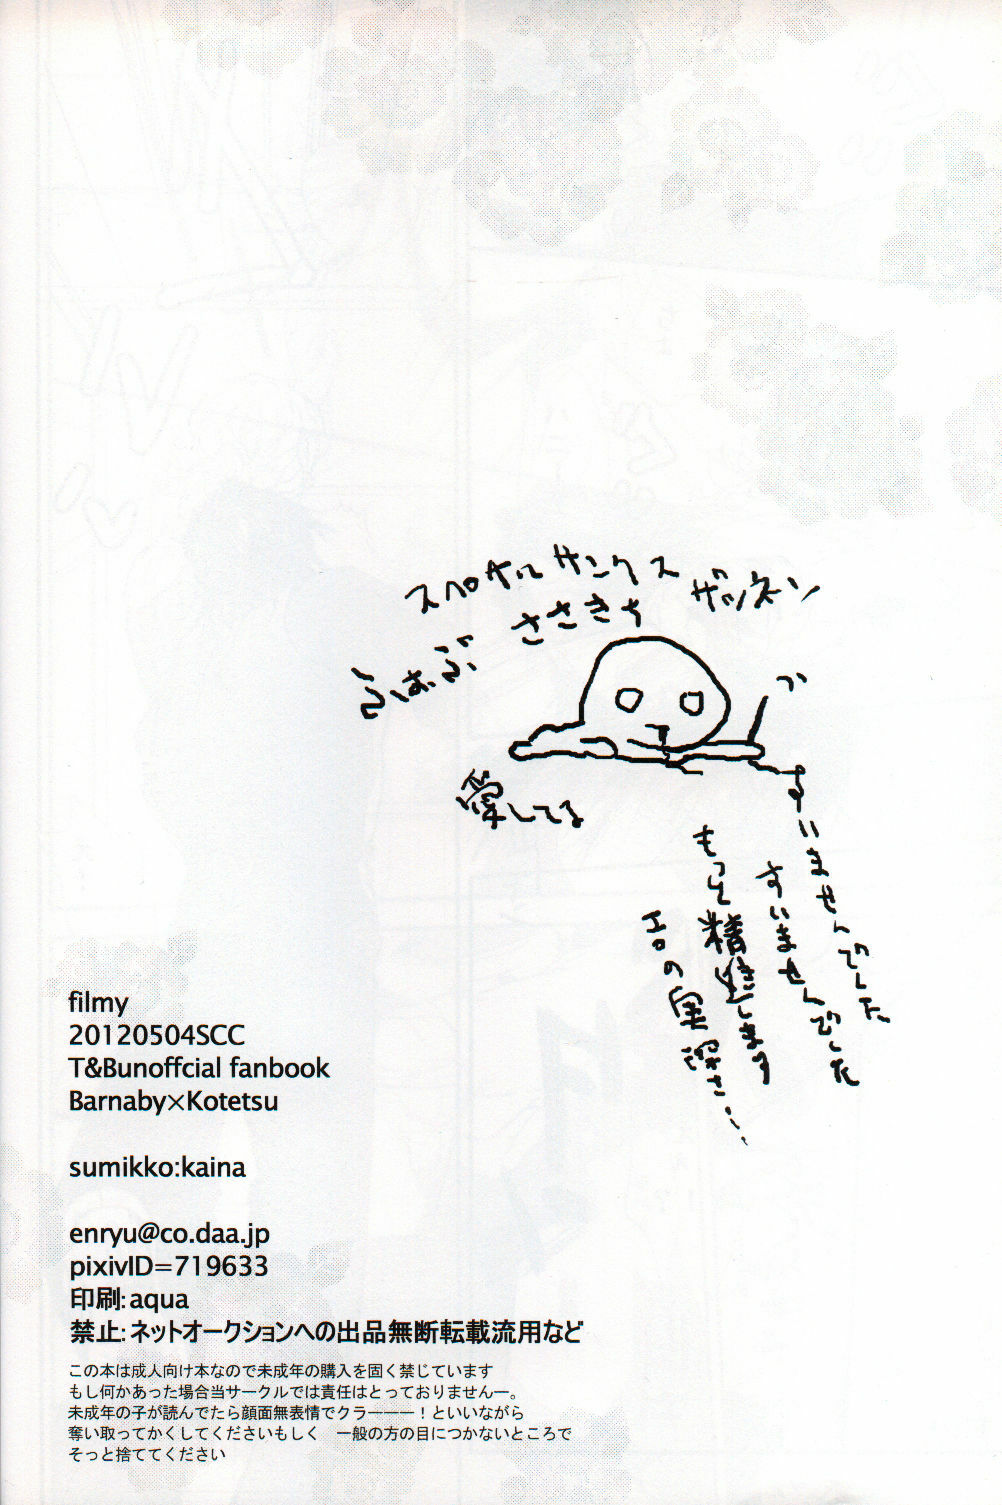 スペサルサンクス
ザッネン
ささきち
らはぶ
愛してる
すいませんでした
すいませんでした
もっと精進します
エロの実深さ…
filmy
20120504SCC
T&Bunoffcial fanbook
Barnaby×Kotetsu
sumikko:kaina
enryu@co.daa.jp
pixivID=719633
印刷:aqua
禁止:ネットオークションへの出品無断転載流用など
この本は成人向け本なので未成年の購入を固く禁じています
もし何かあった場合当サークルでは責任はとっておりませんー。
未成年の子が読んでたら顔面無表情でクラーーー！といいながら
奪い取ってかくしてくださいもしく　一般の方の目につかないところで
そっと捨ててください